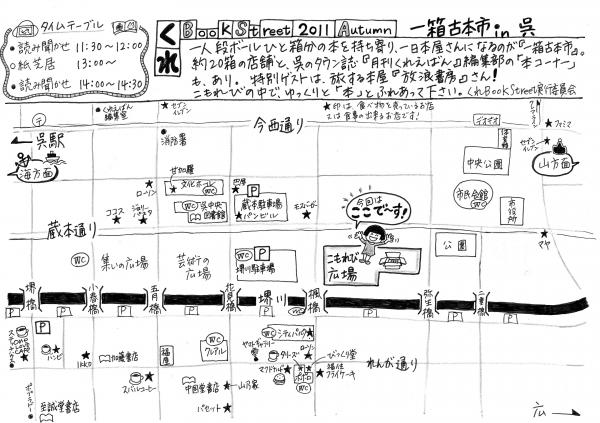 タイムテーブル
●読み聞かせ 11:30~12:00
○紙芝居 13:00~
●読み聞かせ 14:00~14:30
くれ Book Street 2011 Autumn 一箱古本市 in 呉
一人段ボールひと箱分の本を持ち寄り、一日本屋さんになるのが『一箱古本市』。
約20箱の店舗と、呉のタウン誌『月刊くれえばん』編集部の「本コーナー」
も、あり。特別ゲストは、旅する本屋『放浪書房』さん!
こもれびの中でゆっくりと「本」とふれあって下さい。くれBook Street実行委員会
くれえばん編集室
セブンイレブン
★印は、食べ物を売っているお店
又は食事の出来るお店です!
呉駅
消防署
今西通り
デオデオ
体育館
セブンイレブン
ファミマ
海方面
山方面
中央公園
甘加羅
文化ホール
WC
巴屋
P
ローソン
ココス
ジョリーパスタ
WC
呉中央図書館
蔵本駐車場
パンビル
モスバーガー
今回は
ここで~す!
市民会館
WC
市役所
蔵本通り
公園
マヤ
WC
集いの広場
芸術の広場
WC
P
堺川駐車場
こもれび広場
堺橋
小春橋
五月橋
花見橋
堺川
楓橋
弥生橋
二重橋
P
P
P
P
P
P
P
P
ハンビ
IKKO
福屋
WC
クレアル
WC
シティパルク
ヤマトギャラリー
タリーズ
ローソン
びっくり堂
福住
フライケーキ
れんが通り
マクドナルド
ポポロ
WC
スバルコーヒー
中国堂書店
山乃家
パセット
ポップラッピー
至誠堂書店
広